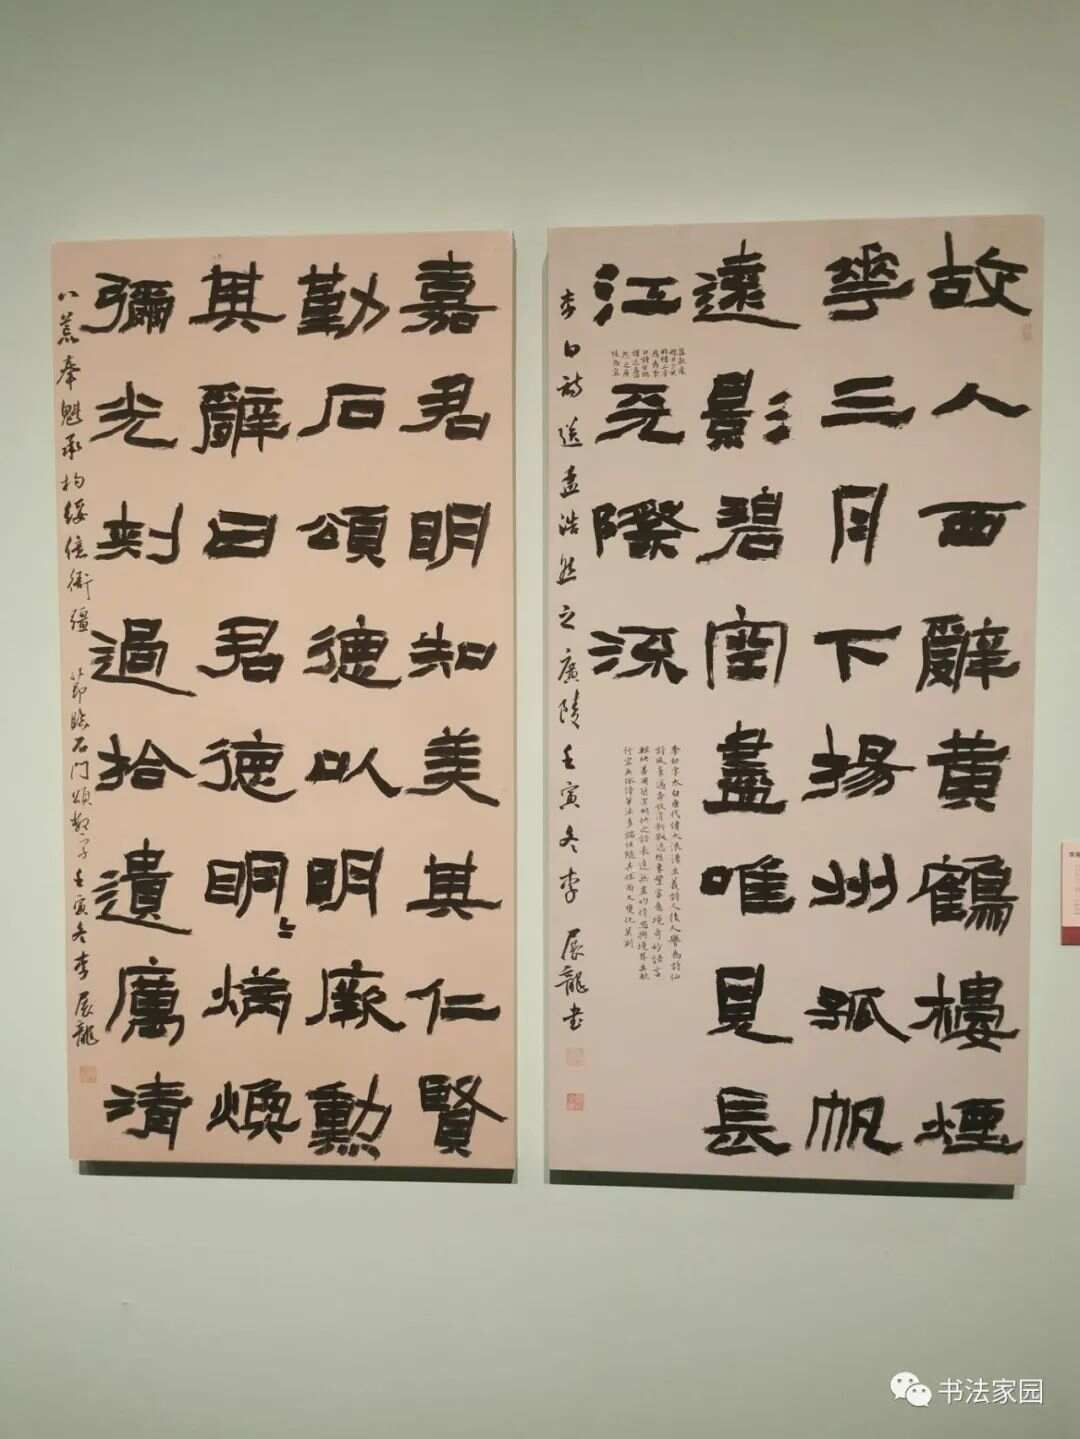 故人西辭黄鶴樓煙
華三月下揚州孤帆
遠影碧空盡唯見長
江天際流
李白詩送孟浩然之廣陵壬寅冬李展龍書
嘉君明知美其仁賢
勤石頌德以明厥勲
其辭曰君德明明炳煥
彌光刺過拾遺厲清
八荒奉魁承杓綏億衙彊 節臨石门頌數字壬寅冬李展龍
书法家园